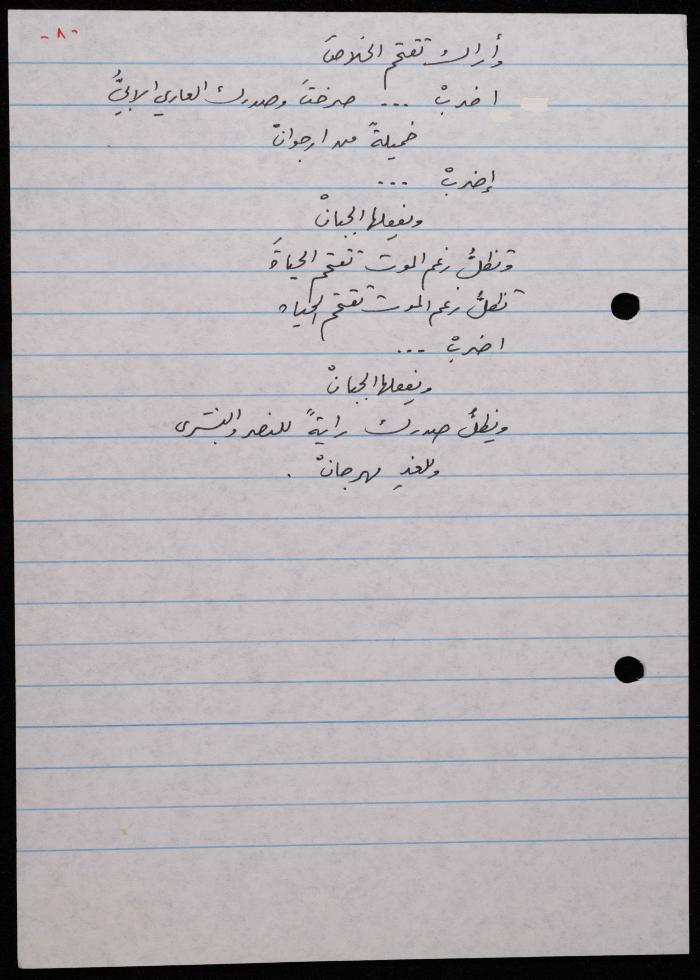 -٨-
وأراك تقتحم الخلاصَ
اضربْ ... صرختَ وصدرك العاري الابيُّ
خميلةً من ارجوانْ
إضربْ ...
ويفعلها الجبانْ
وتظلُّ رغم الموت تقتحم الحياةَ
تظلُّ رغم الموت تقتحم الحياه
اضربْ ...
ويفعلها الجبانْ
ويظلُّ صدرك رايةً للنصر والبشرى
وللغدِ مهرجانْ .